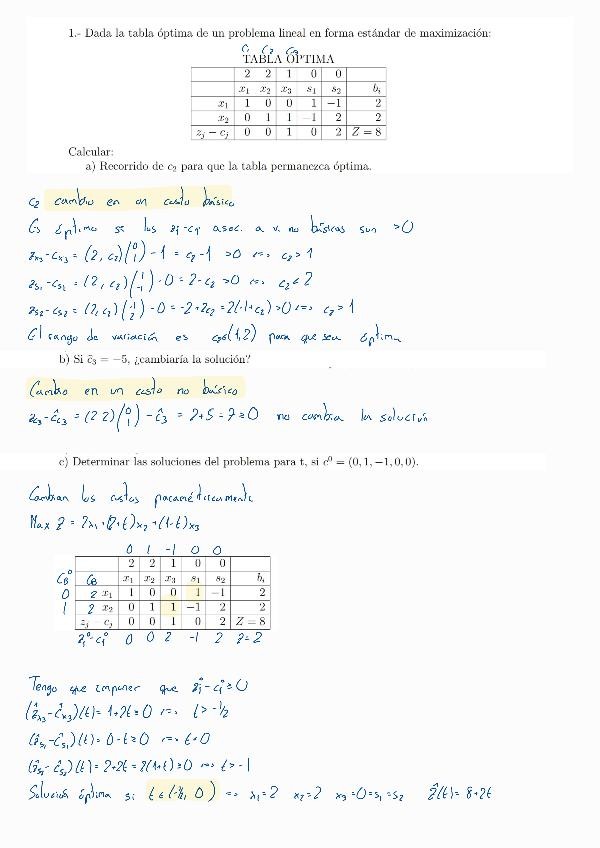 1.- Dada la tabla óptima de un problema lineal en forma estándar de maximización:
C₁ C₂ C₃
TABLA ÓPTIMA
2 2 1 0 0
x₁ x₂ x₃ s₁ s₂ bᵢ
x₁ 1 0 0 1 −1 2
x₂ 0 1 1 −1 2 2
zⱼ − cⱼ 0 0 1 0 2 Z = 8
Calcular:
a) Recorrido de c₂ para que la tabla permanezca óptima.
c₂ cambio en un costo básico
Es óptimo si los zj-cj asoc. a v. no básicas son >0
zx₃-cx₃ = (2, c₂)(0 1) - 1 = c₂-1 >0 => c₂>1
zs₁-cs₁ = (2, c₂)(1 -1) - 0 = 2-c₂ >0 => c₂<2
zs₂-cs₂ = (2, c₂)(-1 2) - 0 = -2+2c₂ = 2(-1+c₂)>0 => c₂>1
El rango de variación es c₂∈(1,2) para que sea óptima
b) Si c̄₃ = −5, ¿cambiaría la solución?
Cambio en un costo no básico
zx₃-ĉ₃ = (2 2)(0 1) - ĉ₃ = 2+5 = 7≥0 no cambia la solución
c) Determinar las soluciones del problema para t, si c⁰ = (0, 1, −1, 0, 0).
Cambian los costos paramétricamente
Max Z = 2x₁+(2+t)x₂+(1-t)x₃
0 1 -1 0 0
2 2 1 0 0
C_B⁰ C_B x₁ x₂ x₃ s₁ s₂ bᵢ
0 2 x₁ 1 0 0 1 −1 2
1 2 x₂ 0 1 1 −1 2 2
zⱼ − cⱼ 0 0 1 0 2 Z = 8
zj⁰-cj⁰ 0 0 2 -1 2 z=2
Tengo que imponer que zj⁰-cj⁰≥0
(ẑx₃-ĉx₃)(t) = 1+2t≥0 => t>-1/2
(ẑs₁-ĉs₁)(t) = 0-t≥0 => t<0
(ẑs₂-ĉs₂)(t) = 2+2t = 2(1+t)≥0 => t>-1
Solución óptima si t∈(-½, 0) => x₁=2 x₂=2 x₃=0=s₁=s₂ ẑ(t)=8+2t